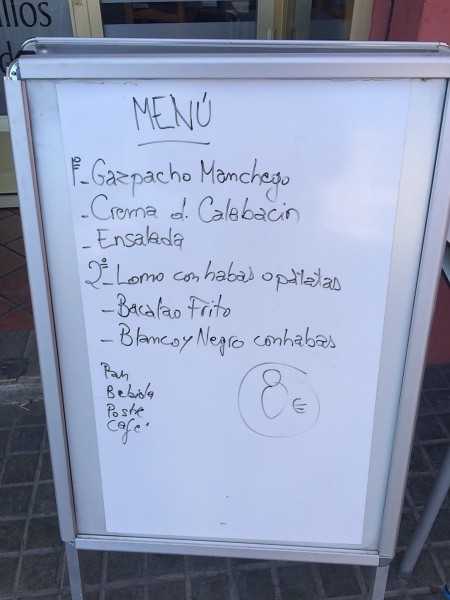 llos
MENÚ
1º- Gazpacho Manchego
- Crema d. Calabacin
- Ensalada
2º- Lomo con habas o patatas
- Bacalao Frito
- Blanco y Negro con habas
Pan
Bebida
Postre
Cafe.
8 €